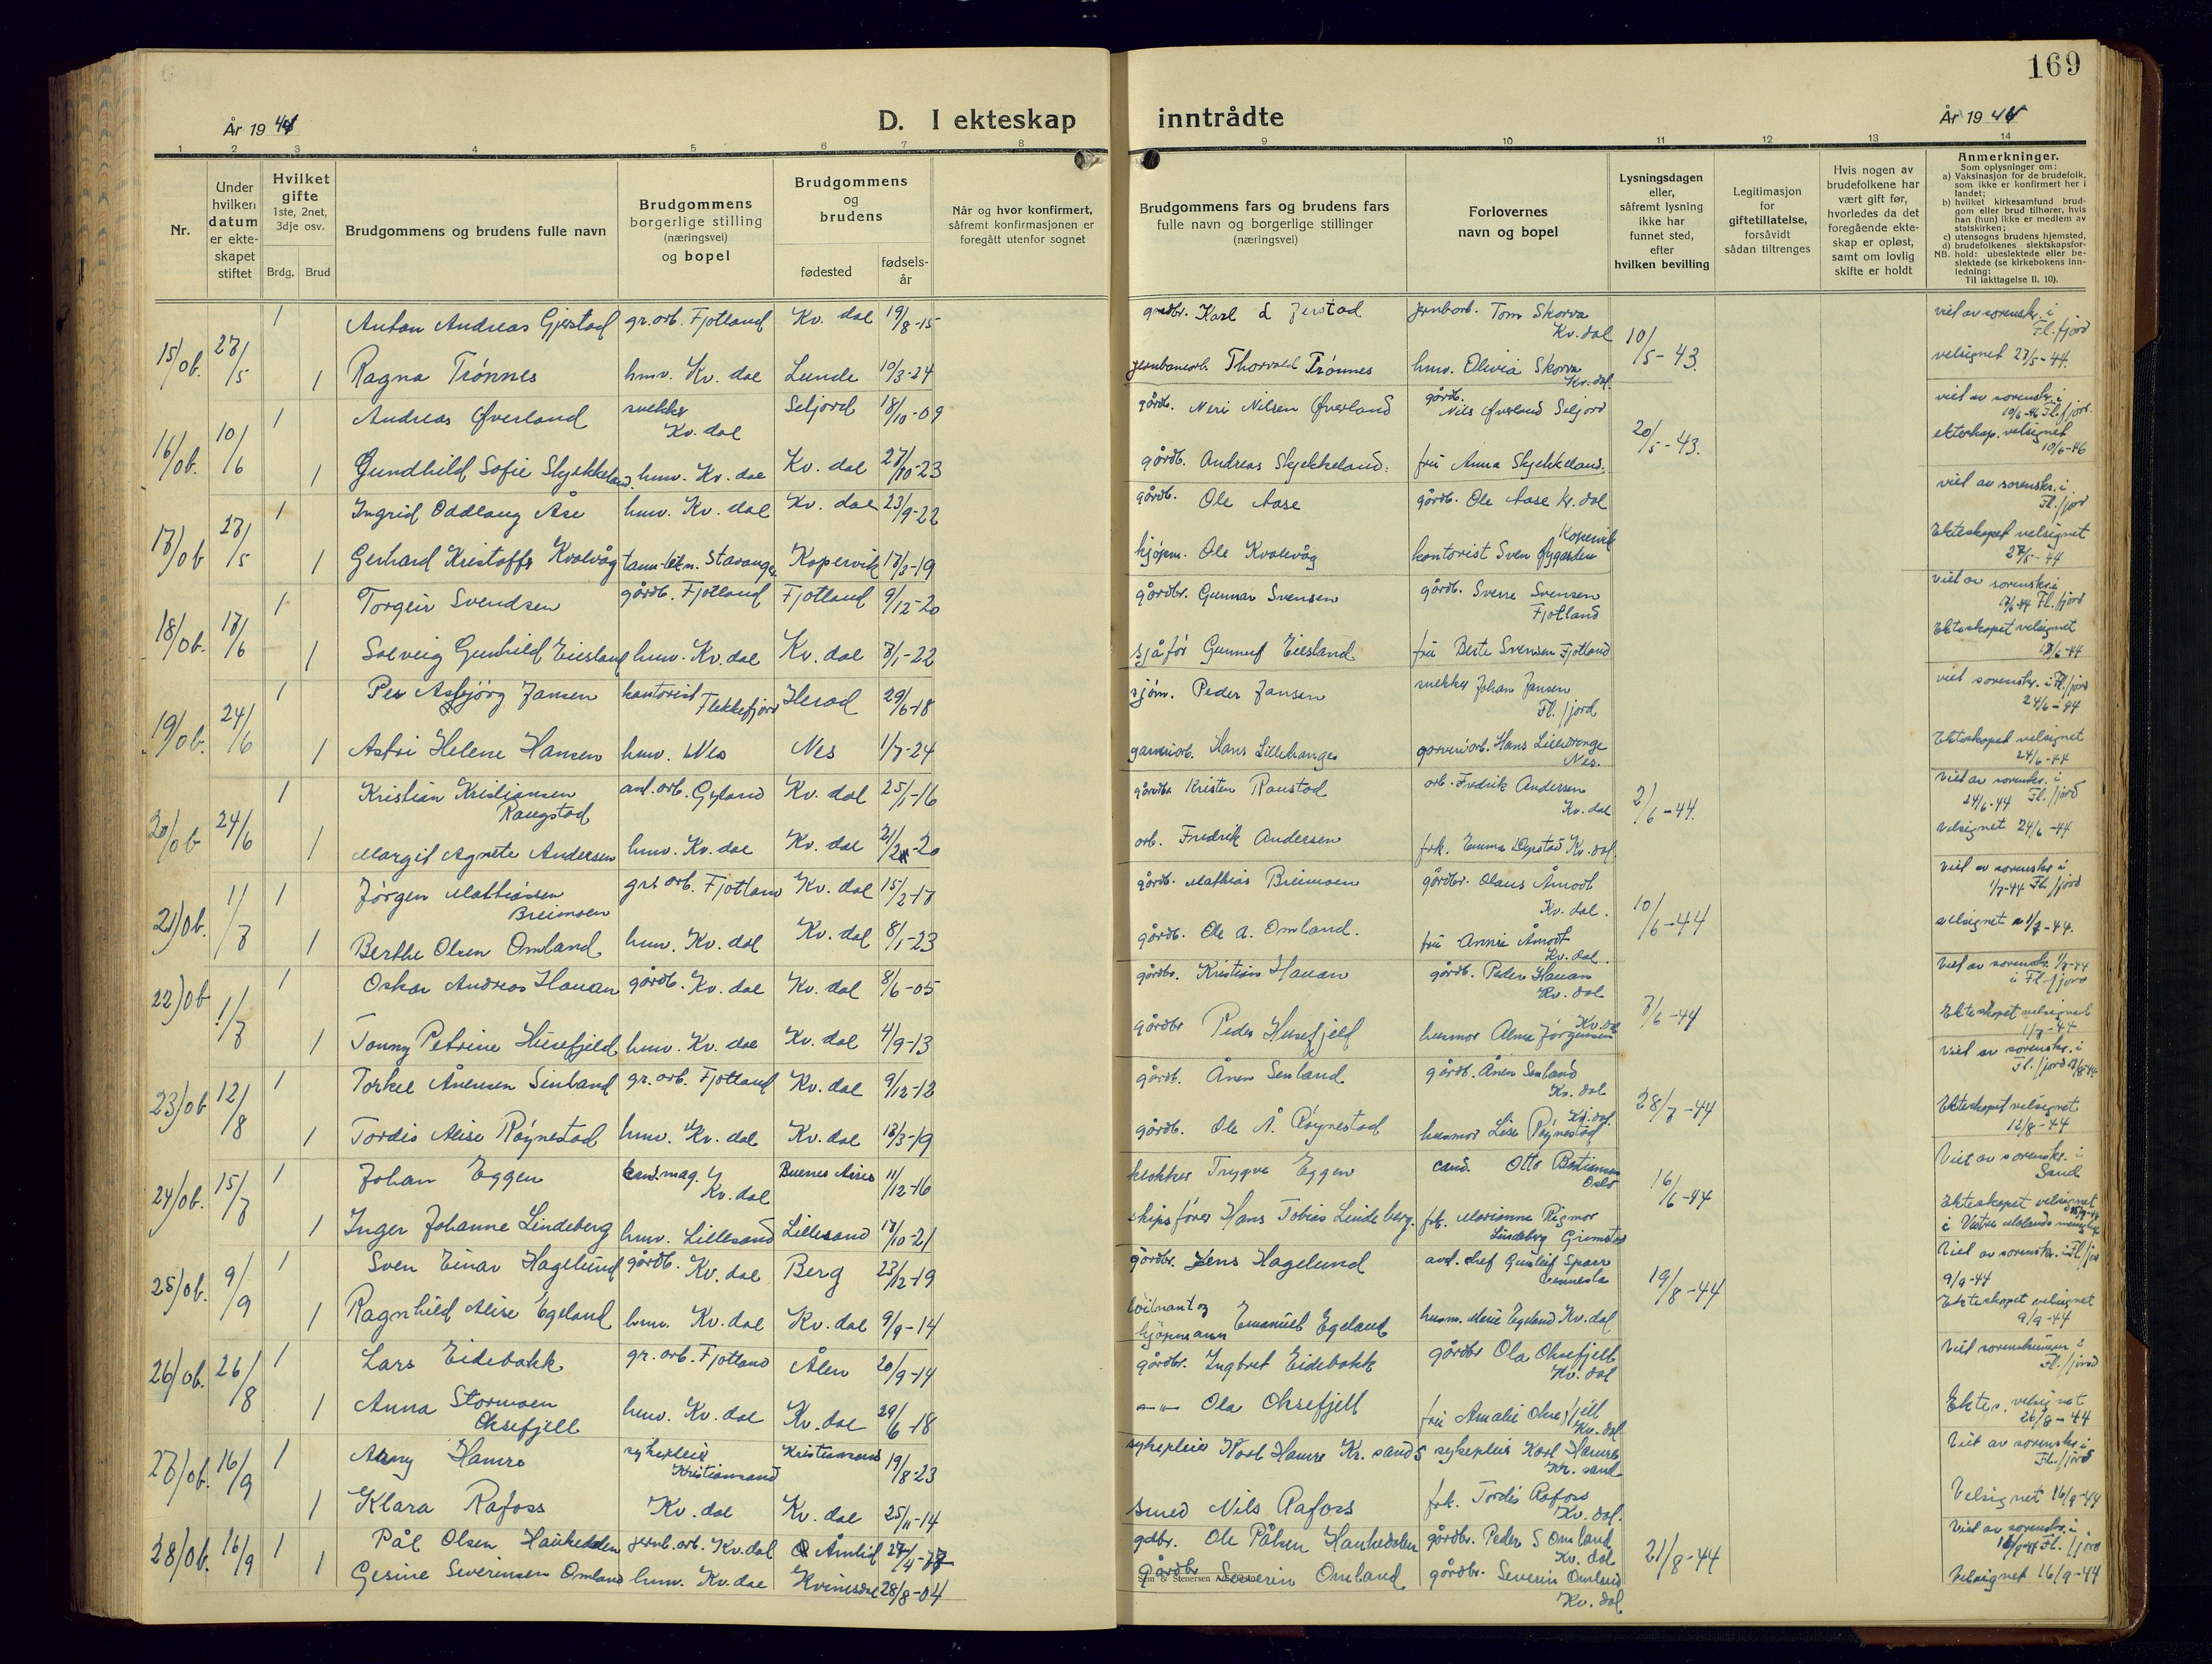 169
År 1944
D. I ekteskap inntrådte
År 1944
1 2 3 4 5 6 7 8 9 10 11 12 13 14
Nr.
Under
hvilken
datum
er ekte-
skapet
stiftet
Hvilket
gifte
1ste, 2net,
3dje osv.
Brdg. Brud
Brudgommens og brudens fulle navn
Brudgommens
borgerlige stilling
(næringsvei)
og bopel
Brudgommens
og
brudens
fødested
fødsels-
år
Når og hvor konfirmert,
såfremt konfirmasjonen er
foregått utenfor sognet
Brudgommens fars og brudens fars
fulle navn og borgerlige stillinger
(næringsvei)
Forlovernes
navn og bopel
Lysningsdagen
eller,
såfremt lysning
ikke har
funnet sted,
efter
hvilken bevilling
Legitimasjon
for
giftetillatelse,
forsåvidt
sådan tiltrenges
Hvis nogen av
brudefolkene har
vært gift før,
hvorledes da det
foregående ekte-
skap er opløst,
samt om lovlig
skifte er holdt
Anmerkninger.
Som oplysninger om:
a) Vaksinasjon for de brudefolk,
som ikke er konfirmert her i
landet;
b) hvilket kirkesamfund brud-
gom eller brud tilhører, hvis
han (hun) ikke er medlem av
statskirken;
c) utensogns brudens hjemsted,
d) brudefolkenes slektskapsfor-
hold: ubeslektede eller be-
slektede (se kirkebokens inn-
ledning:
NB. Til iakttagelse II. 10).
15/ob. 27/5 1 Anton Andreas Gjerstad gr.arb. Fjotland Kv. dal 19/8-15 Karl Jerstad jernbarb. Tom Skorva Kv. dal 10/5-43. viet av sorenskr. i Fl. fjord
1 Ragna Trønnes hmv. Kv. dal Lunde 10/3-24 jernbanearb. Thorvald Trønnes hmv. Olivia Skorva Kv. dal. velsignet 27/5-44.
16/ob. 10/6 1 Andreas Øverland snekker Kv. dal Seljord 18/10-09 gårdb. Neri Nilsen Øverland gårdb. Nils Øverland Seljord 20/5-43. viet av sorenskr. i Fl. fjord.
1 Gundhild Sofie Skjekkeland hmv. Kv. dal Kv. dal 27/10-23 gårdb. Andreas Skjekkeland. fru Anna Skjekkeland. ekteskap. velsignet 10/6-46
17/ob 27/5 1 Ingrid Oddlaug Åse hmv. Kv. dal Kv. dal 23/9-22 gårdb. Ole Aase gårdb. Ole Aase Kv. dal viet av sorenskr. i Fl. fjord
1 Gerhard Kristoffer Kvalevåg Stavanger Kopervik 17/3-19 kjøpm. Ole Kvalevåg kontorist Sven Øygarden Kopervik Ekteskapet velsignet 27/5-44
18/ob. 17/6 1 Torgeir Svendsen gårdb. Fjotland Fjotland 9/12-20 gårdbr. Gunnar Svensen gårdb. Sverre Svensen Fjotland viet av sorenskr. i 17/6-44 Fl. fjord
1 Solveig Gunhild Eiesland hmv. Kv. dal Kv. dal 7/1-22 sjåfør Gunnuf Eiesland fru Berte Svensen Fjotland Ekteskapet velsignet 17/6-44
19/ob. 24/6 1 Per Asbjørg Jansen kontorist Flekkefjord Herad 29/6-18 sjøm. Peder Jansen snekker Johan Jansen Fl. fjord viet sorenskr. i Fl. fjord 24/6-44
1 Astri Helene Hansen hmv. Nes Nes 1/7-24 garveriarb. Hans garveriarb. Hans Nes. Ekteskapet velsignet 24/6-44
20/ob 24/6 1 Kristian Kristiansen Raugstad anl. arb. Gyland Kv. dal 25/1-16 gårdbr. Kristen Raustad arb. Fredrik Andersen Kv. dal 2/6-44. Viet av sorenskr. i 24/6-44 Fl. fjord
1 Margit Agnete Andersen hmv. Kv. dal Kv. dal arb. Fredrik Andersen frk. Emma Kv. dal. Velsignet 24/6-44
21/ob. 1/7 1 Jørgen Mathiasen Breimoen arb. Fjotland Kv. dal 15/2-17 gårdb. Mathias Breimoen gårdbr. Olaus Åmodt Kv. dal. 10/6-44 Viet av sorenskr i 1/7-44 Fl. fjord
1 Berthe Olsen Omland hmv. Kv. dal Kv. dal 8/1-23 gårdb. Ole A. Omland. fru Annie Åmodt Kv. dal. velsignet 1/7-44.
22/ob 1/7 1 Oskar Andreas Hauan gårdb. Kv. dal Kv. dal 8/6-05 gårdbr. Kristian Hauan gårdb. Peder Hauan Kv. dal 7/6-44 Viet av sorenskr. 1/7-44 i Fl. fjord
1 Tonny Petrine Husefjeld hmv. Kv. dal Kv. dal 4/9-13 gårdbr Peder Husefjeld husmor Alma Jørgensen Kv. dal Ekteskapet velsignet 1/7-44
23/ob 12/8 1 Torkel Ånensen Sinland gr. arb. Fjotland Kv. dal 9/12-12 gårdb. Ånen Senland gårdb. Ånen Senland Kv. dal 28/7-44 Viet av sorenskr. i Fl. fjord
1 Tordis Alise Røynestad hmv. Kv. dal Kv. dal 13/3-19 gårdb. Ole Å. Røynestad husmor Lise Røynestad Kv. dal. Ekteskapet velsignet 12/8-44
24/ob. 15/7 1 Johan Eggen cand. mag. Kv. dal Buenes Aires 11/12-16 klokker Trygve Eggen cand. Otto Oslo 16/6-44 Viet av sorenskr. i Sand
1 Inger Johanne Lindeberg hmv. Lillesand Lillesand 17/10-21 skipsfører Hans Tobias Lindeberg. frk. Marianne Rigmor Lindeberg Grimstad Ekteskapet velsignet i Vestre Molands menighet
25/ob. 9/9 1 Sven Einar Hagelund gårdb. Kv. dal Berg 23/12-19 gårdbr. Jens Hagelund avd. chef Gunleif Spaer Vennesla 19/8-44 Viet av sorenskr. i Fl. fjord 9/9-44
1 Ragnhild Alise Egeland hmv. Kv. dal Kv. dal 9/9-14 løitnant og kjøpmann Emanuel Egeland husm. Marie Egeland Kv. dal Ekteskapet velsignet 9/9-44
26/ob. 26/8 1 Lars Eidebakk gr. arb. Fjotland Ålen 20/9-14 gårdbr. Ingbret Eidebakk gårdbr Ola Oksefjell Kv. dal Viet sorenskriveren i Fl. fjord
1 Anna Stormoen Oksefjell hmv. Kv. dal Kv. dal 29/6-18 Ola Oksefjell fru Amalie Oksefjell Kv. dal Ektes. velsignet 26/8-44
27/ob. 16/9 1 Hamre sykepleier Kristiansand Kristiansand 19/8-23 sykepleier Karl Hamre Kr. sand S sykepleier Karl Hamre Kr. sand Viet av sorenskr. i Fl. fjord
1 Klara Rafoss Kv. dal Kv. dal 25/11-14 smed Nils Rafoss frk. Tordis Rafoss Kv. dal. Velsignet 16/9-44
28/ob. 16/9 1 Pål Olsen Haukedalen jernb. arb. Kv. dal Åmlid gdbr. Ole Pålsen Haukedalen gårdbr. Peder S Omland Kv. dal 21/8-44 Viet av sorenskr. i 16/9-44 Fl. fjord
1 Gesine Severinsen Omland hmv. Kv. dal Kvinesdal 28/8-04 gårdbr Severin Omland gårdbr. Severin Omland Kv. dal Velsignet 16/9-44